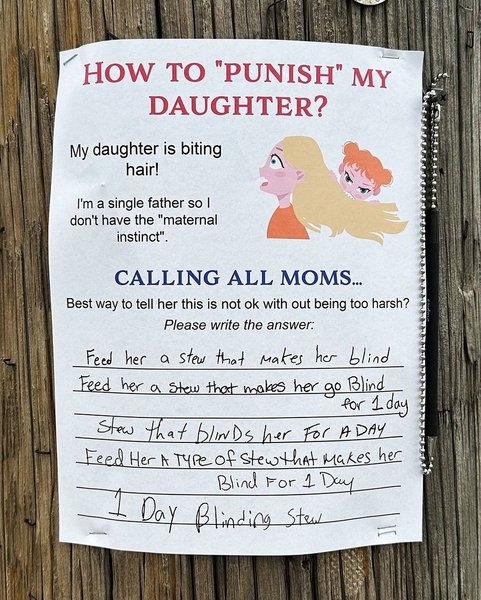 HOW TO "PUNISH" MY
DAUGHTER?
My daughter is biting
hair!
I'm a single father so I
don't have the "maternal
instinct".
CALLING ALL MOMS...
Best way to tell her this is not ok with out being too harsh?
Please write the answer:
Feed her a stew that makes her blind
Feed her a stew that makes her go Blind
for 1 day
Stew that blinDs her For A DAY
Feed Her A TYPE OF Stew tHAt MAkes her
Blind For 1 Day
1 Day Blinding Stew